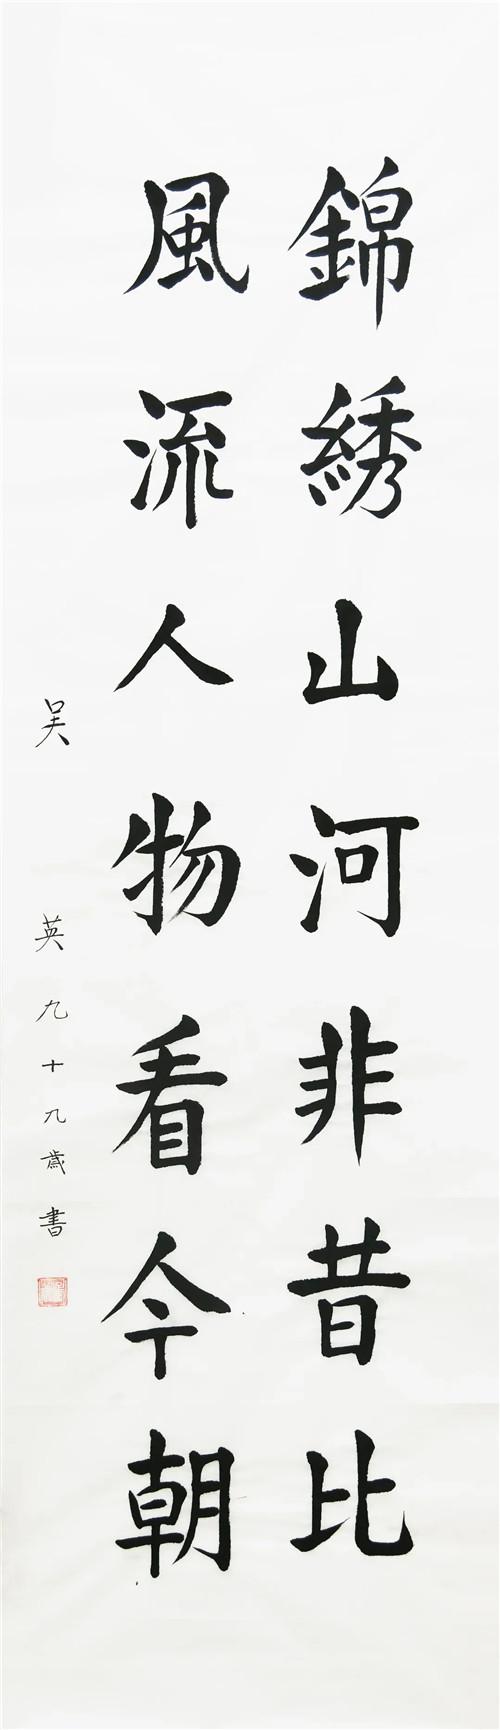 錦綉山河非昔比
風流人物看今朝
吴英九十九歲書